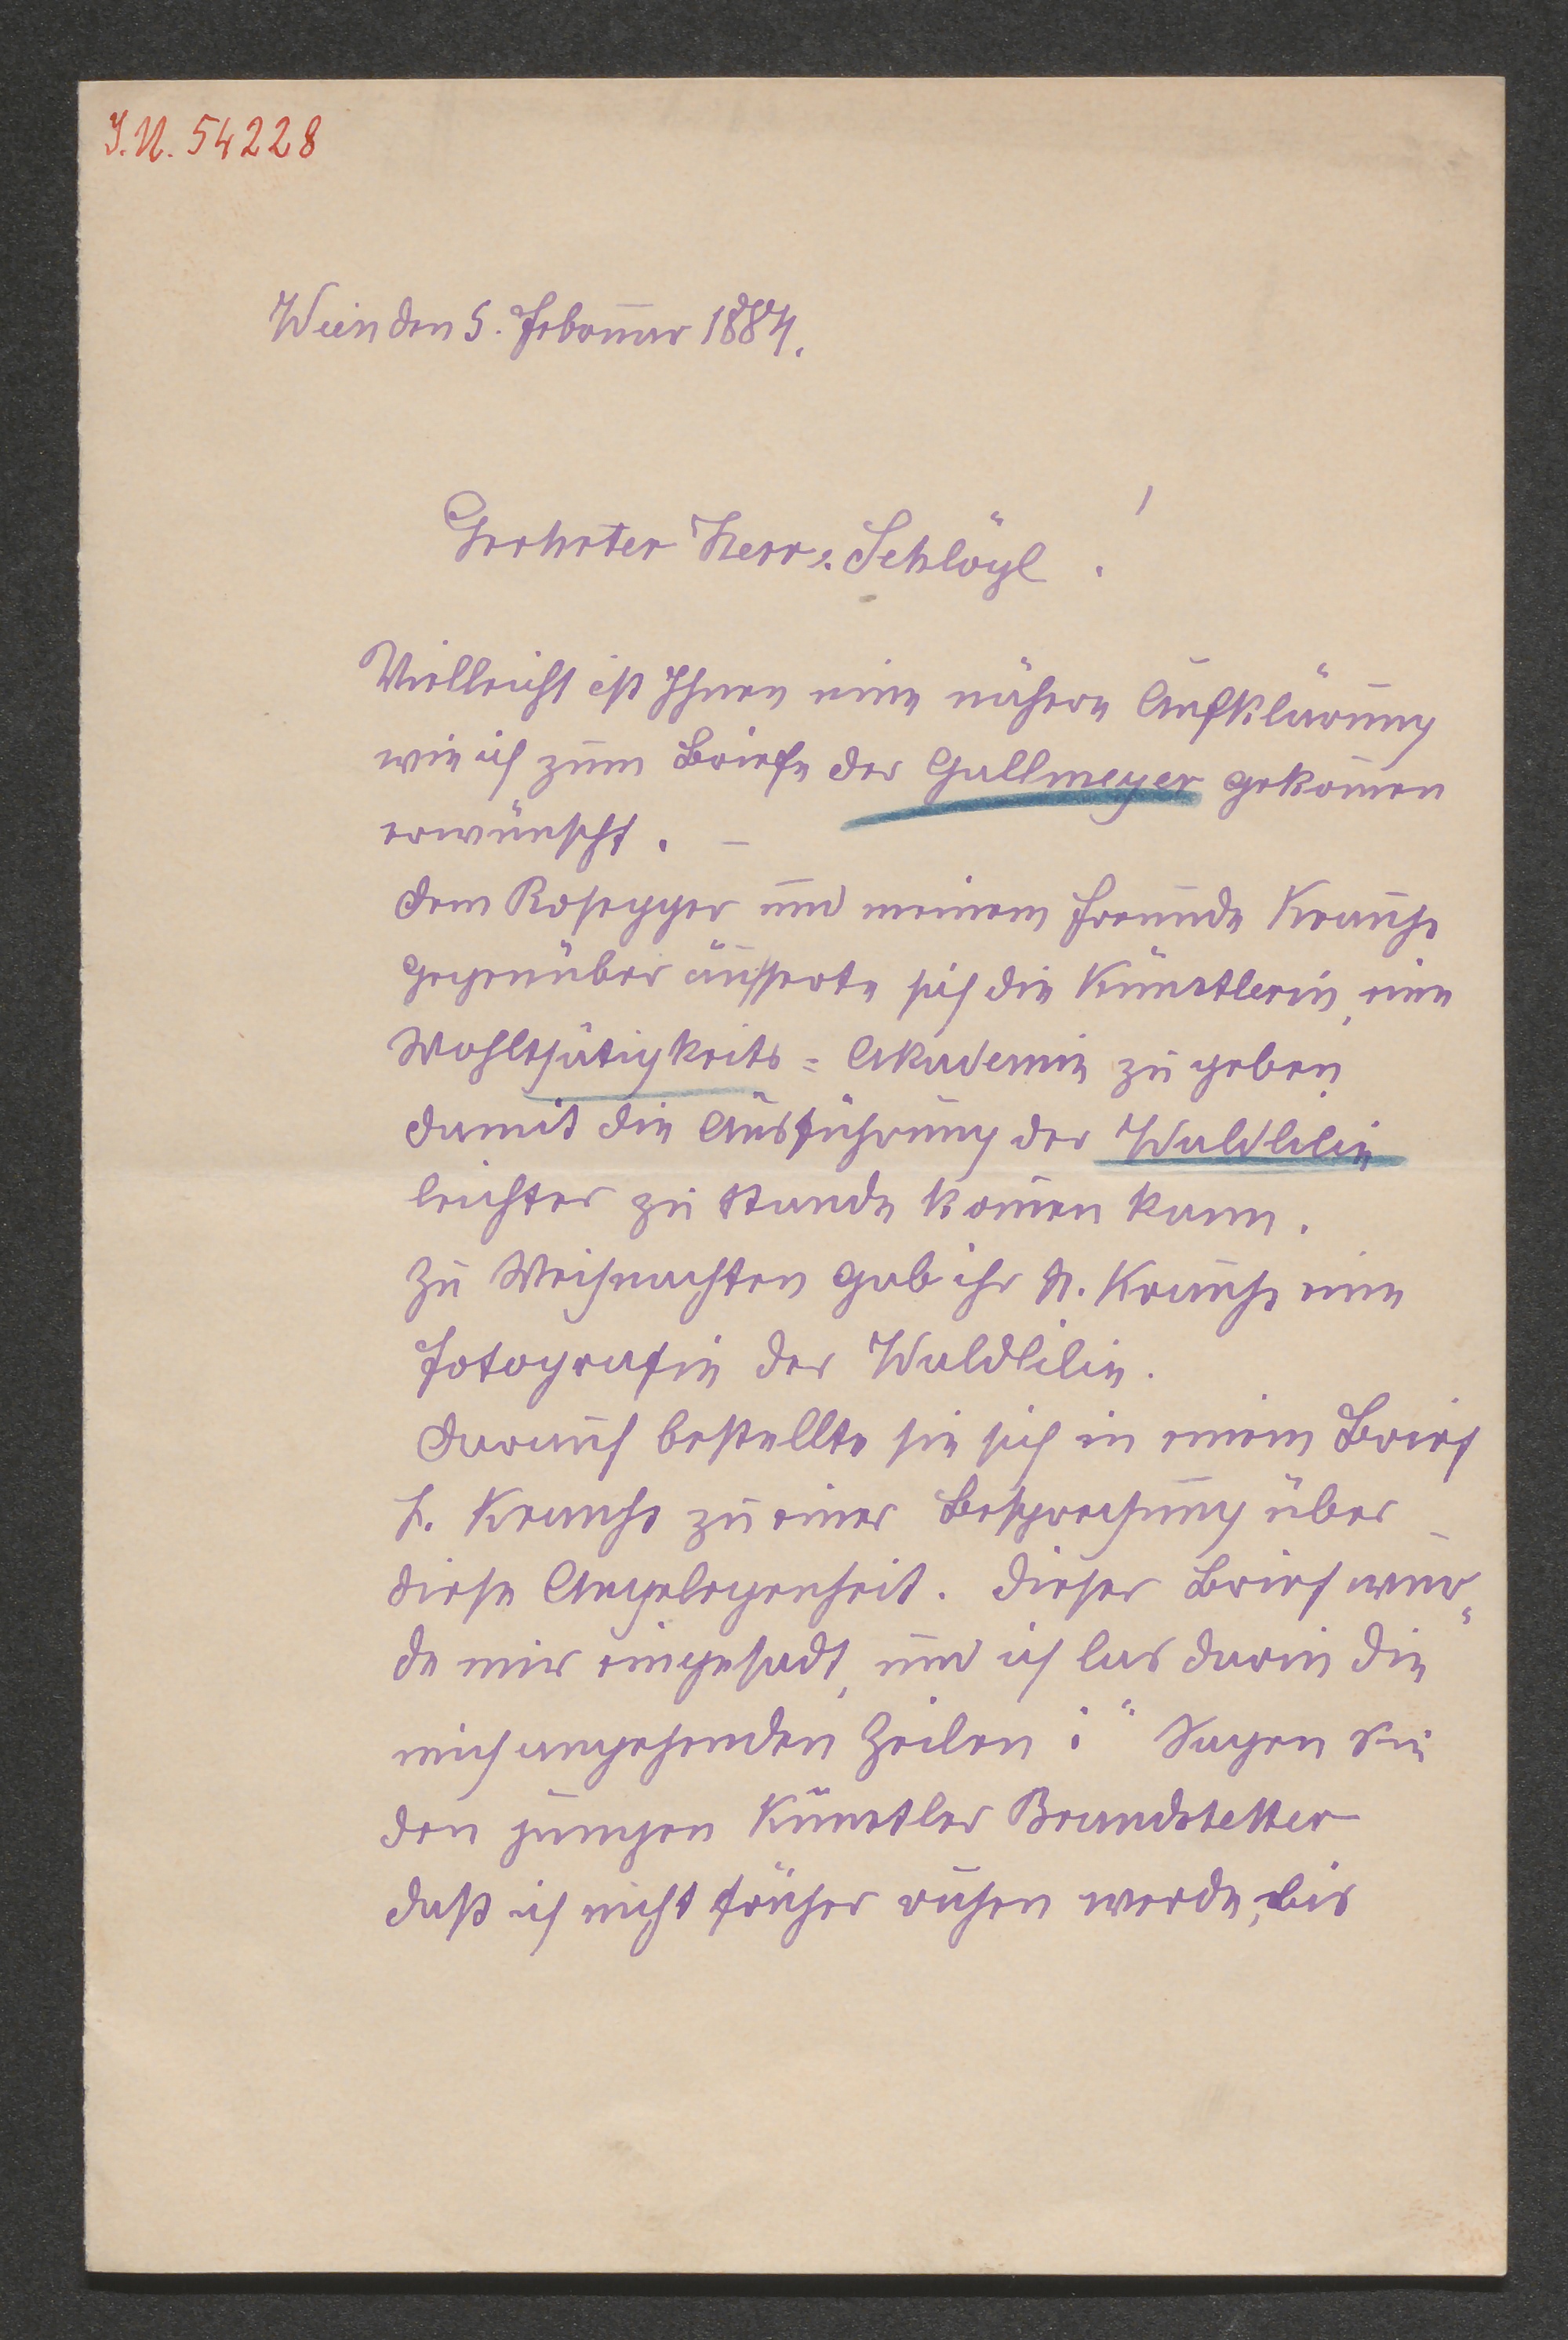 I.N. 54228
Wien den 5. Februar 1884.
Geehrter Herr v. Schlögl!
Vielleicht ist Ihnen eine nähere Aufklärung
wie ich zum Briefe der Gallmeyer gekom̄en
erwünscht. –
Dem Rosegger und meinem Freunde
gegenüber äusserte sich die Künstlerin, eine
Wohlthätigkeits= Akademie zu geben,
damit die Ausführung der Waldlilie
leichter zu Stande kom̄en kann.
Zu Weihnachten gab ihr H. eine
Fotografie der Waldlilie.
Darauf bestellte sie sich in einem Brief
H. zu einer Besprechung über
diese Angelegenheit. Dieser Brief wur„
de mir eingesadt, und ich las darin die
mich angehenden Zeilen: " Sagen Sie
den jungen Künstler Brandstetter
daß ich nicht früher ruhen werde, bis